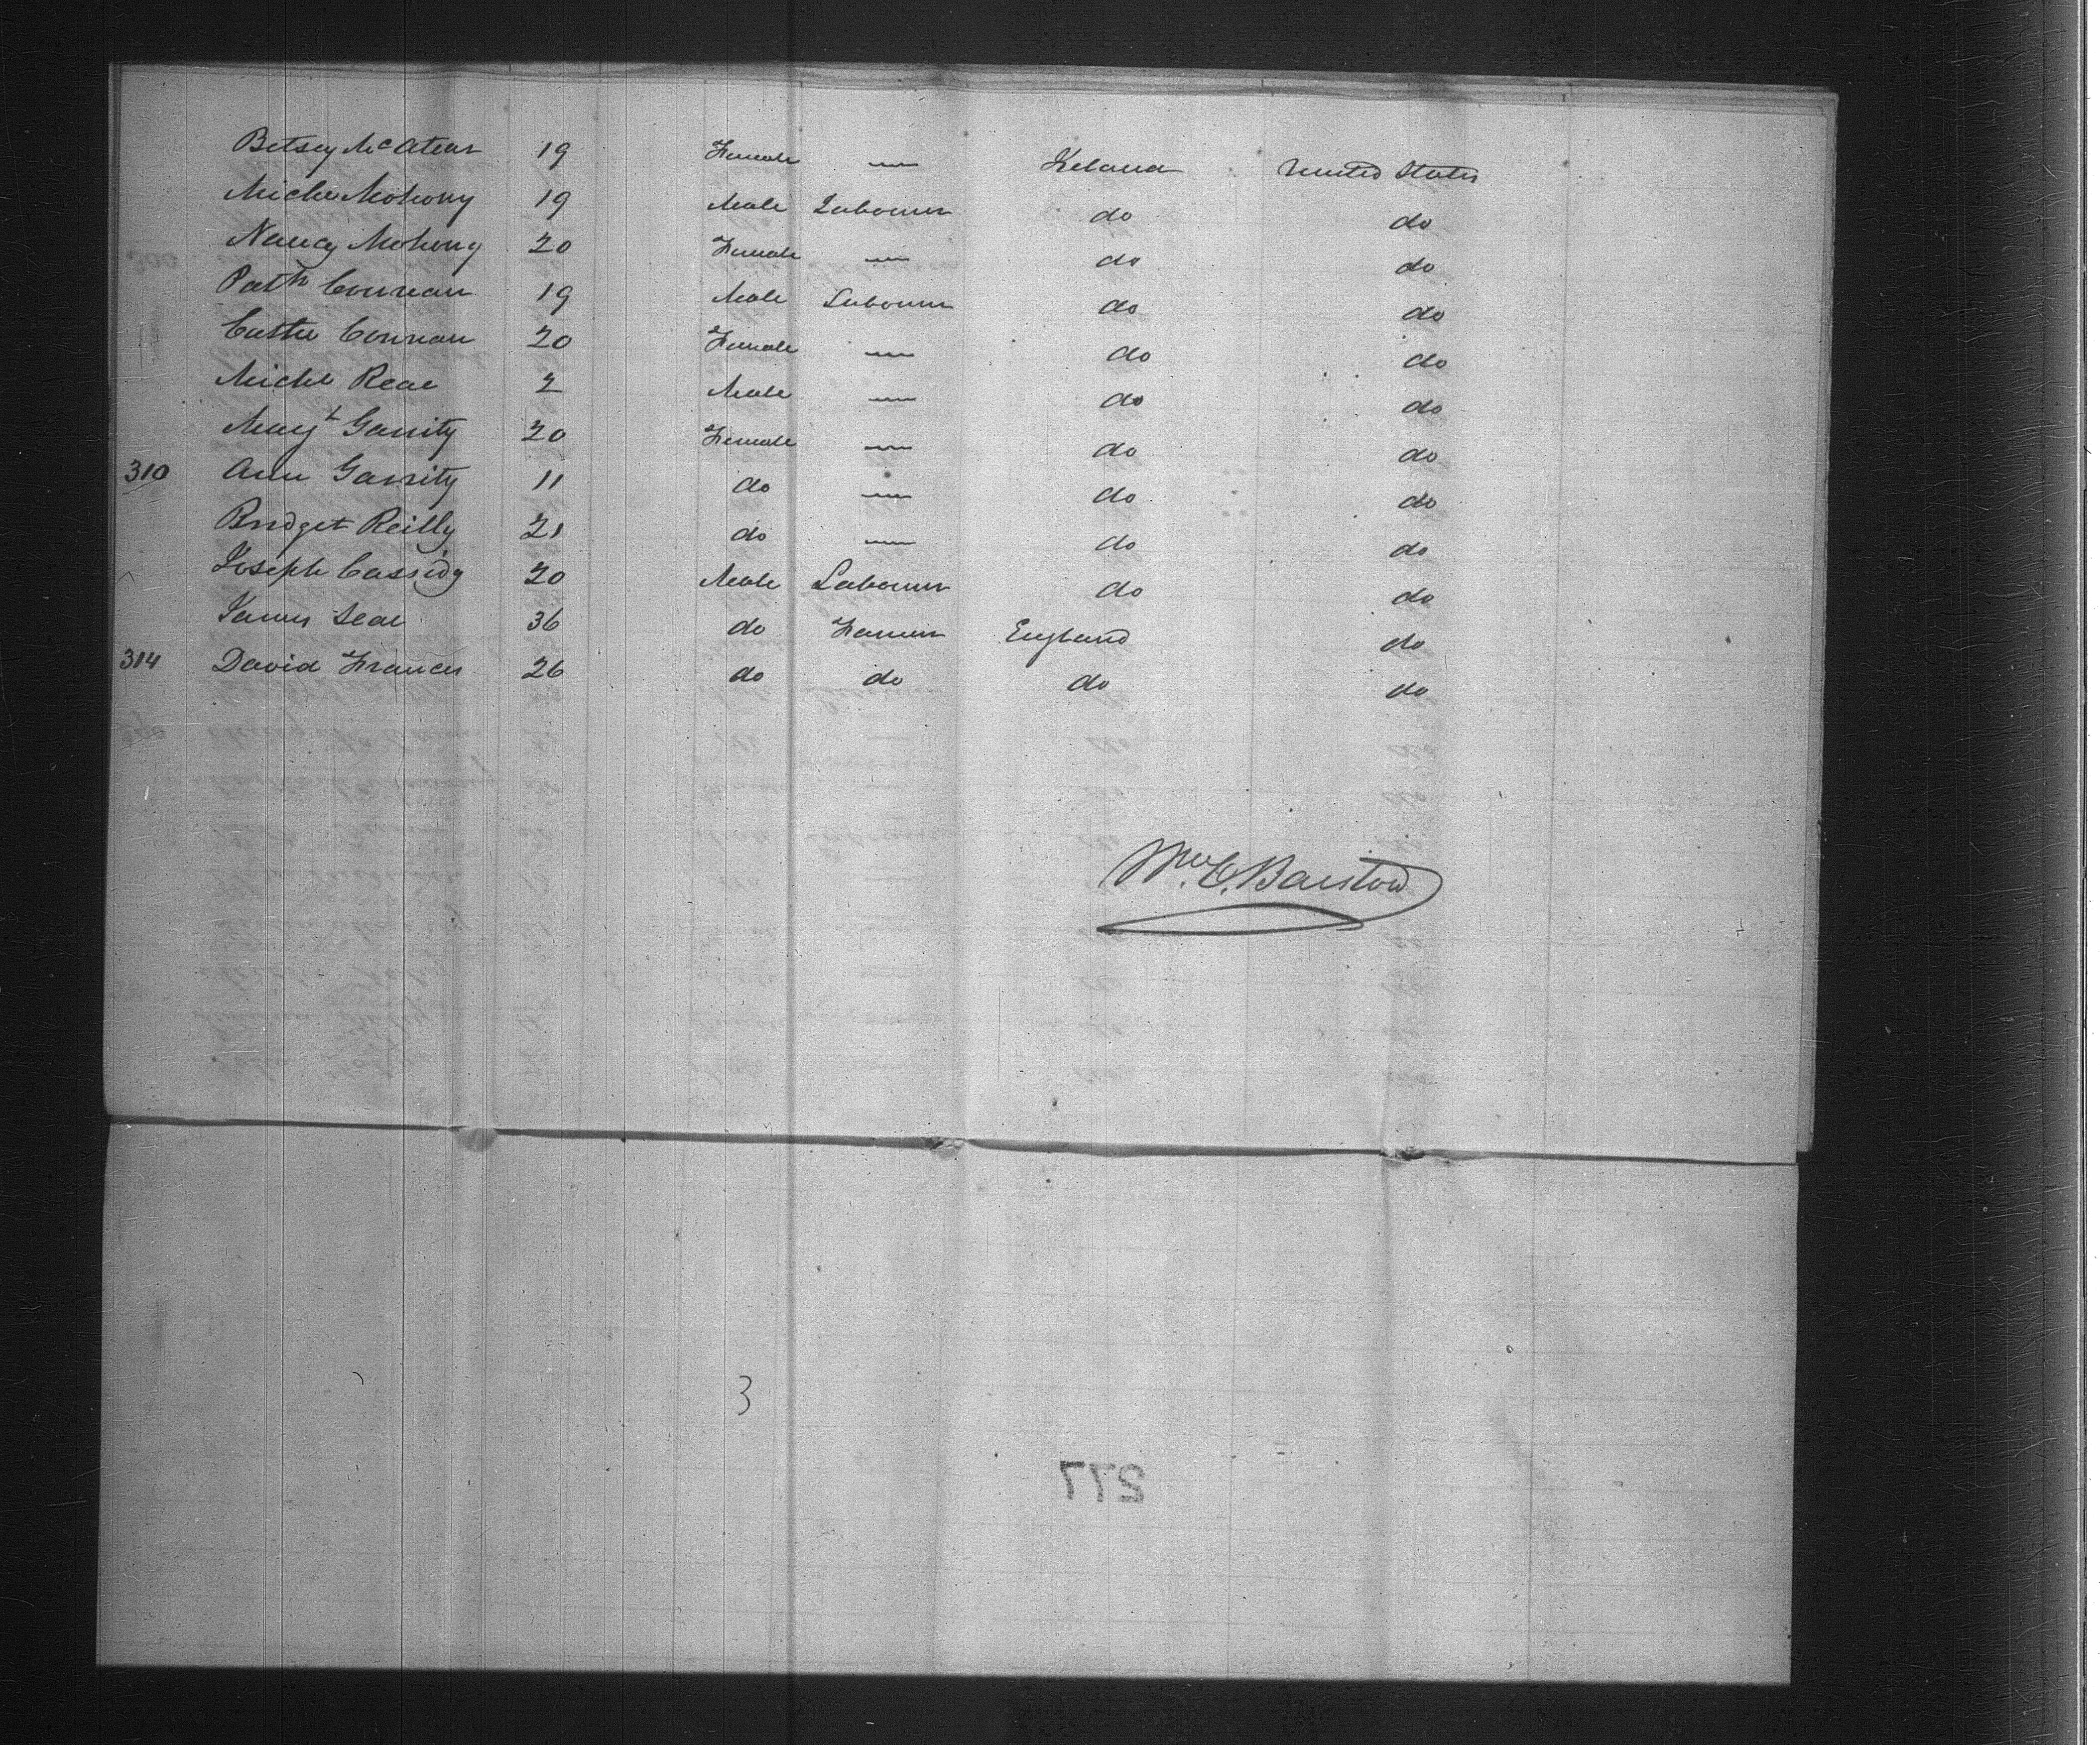 Betsey McAteer 19 Female — Ireland United States
Michl Mohony 19 Male Labourer do do
Nancy Mohony 20 Female — do do
Patk Connan 19 Male Labourer do do
Cathe Connan 20 Female — do do
Michl Reae 2 Male — do do
Magt Garrity 20 Female — do do
310 Ann Garrity 11 do — do do
Bridget Reilly 21 do — do do
Joseph Cassidy 20 Male Labourer do do
James Seal 36 do Farmer England do
314 David Francis 26 do do do do
Wm. C. Barstow
3
277